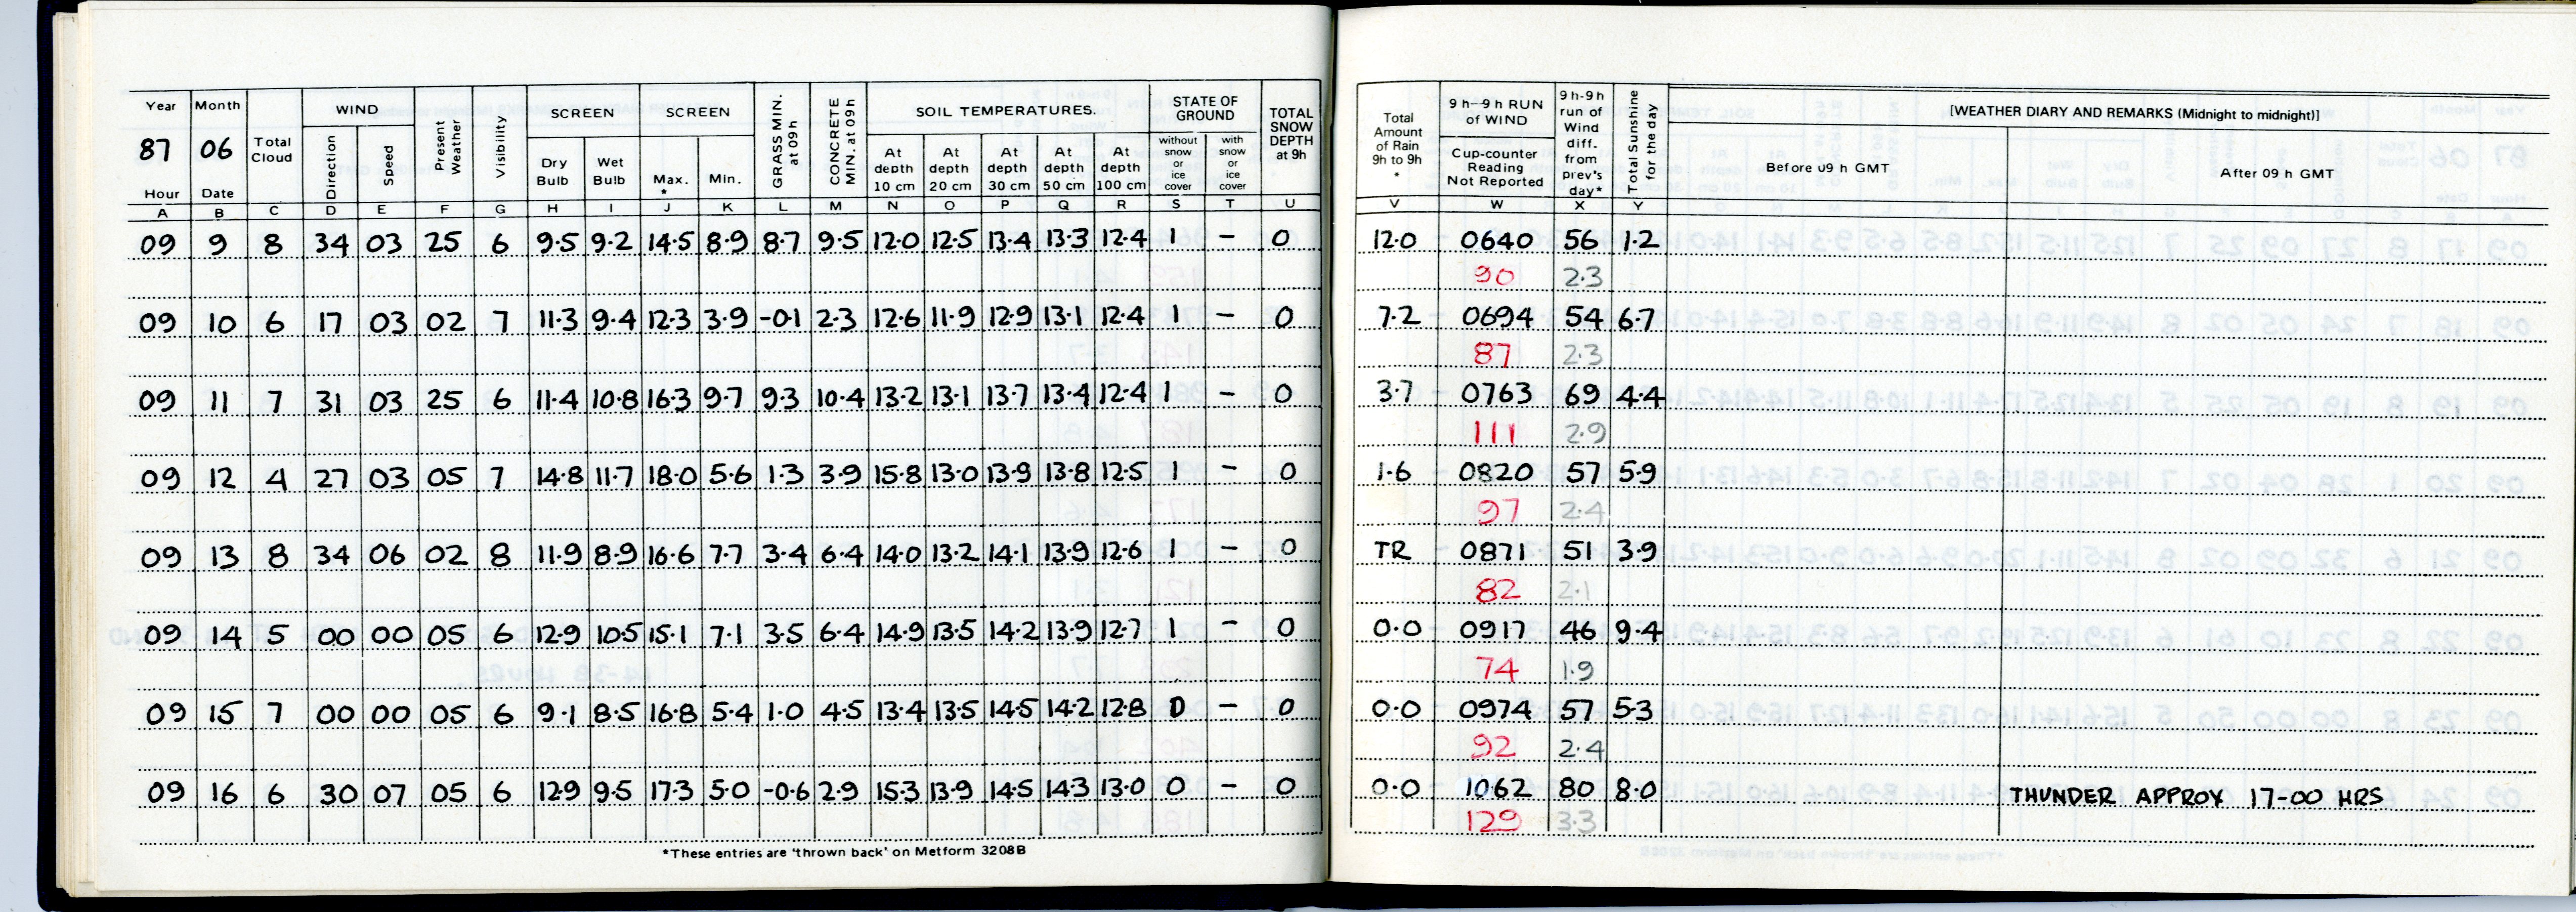 Year Month Total Cloud WIND Present Weather Visibility SCREEN SCREEN GRASS MIN. at 09h CONCRETE MIN. at 09h SOIL TEMPERATURES. STATE OF GROUND TOTAL SNOW DEPTH at 9h Total Amount of Rain 9h to 9h * 9 h–9 h RUN of WIND 9 h-9h run of Wind diff. from prev's day* Total Sunshine for the day [WEATHER DIARY AND REMARKS (Midnight to midnight)]
87 06 Direction Speed Dry Bulb Wet Bulb Max. * Min. At depth 10 cm At depth 20 cm At depth 30 cm At depth 50 cm At depth 100 cm without snow or ice cover with snow or ice cover Cup-counter Reading Not Reported Before 09 h GMT After 09 h GMT
Hour Date
A B C D E F G H I J K L M N O P Q R S T U V W X Y
09 9 8 34 03 25 6 9.5 9.2 14.5 8.9 8.7 9.5 12.0 12.5 13.4 13.3 12.4 1 – 0 12.0 0640 56 1.2
90 2.3
09 10 6 17 03 02 7 11.3 9.4 12.3 3.9 -0.1 2.3 12.6 11.9 12.9 13.1 12.4 1 – 0 7.2 0694 54 6.7
87 2.3
09 11 7 31 03 25 6 11.4 10.8 16.3 9.7 9.3 10.4 13.2 13.1 13.7 13.4 12.4 1 – 0 3.7 0763 69 4.4
111 2.9
09 12 4 27 03 05 7 14.8 11.7 18.0 5.6 1.3 3.9 15.8 13.0 13.9 13.8 12.5 1 – 0 1.6 0820 57 5.9
97 2.4
09 13 8 34 06 02 8 11.9 8.9 16.6 7.7 3.4 6.4 14.0 13.2 14.1 13.9 12.6 1 – 0 TR 0871 51 3.9
82 2.1
09 14 5 00 00 05 6 12.9 10.5 15.1 7.1 3.5 6.4 14.9 13.5 14.2 13.9 12.7 1 – 0 0.0 0917 46 9.4
74 1.9
09 15 7 00 00 05 6 9.1 8.5 16.8 5.4 1.0 4.5 13.4 13.5 14.5 14.2 12.8 0 – 0 0.0 0974 57 5.3
92 2.4
09 16 6 30 07 05 6 12.9 9.5 17.3 5.0 -0.6 2.9 15.3 13.9 14.5 14.3 13.0 0 – 0 0.0 1062 80 8.0 THUNDER APPROX 17-00 HRS
129 3.3
*These entries are 'thrown back' on Metform 3208B